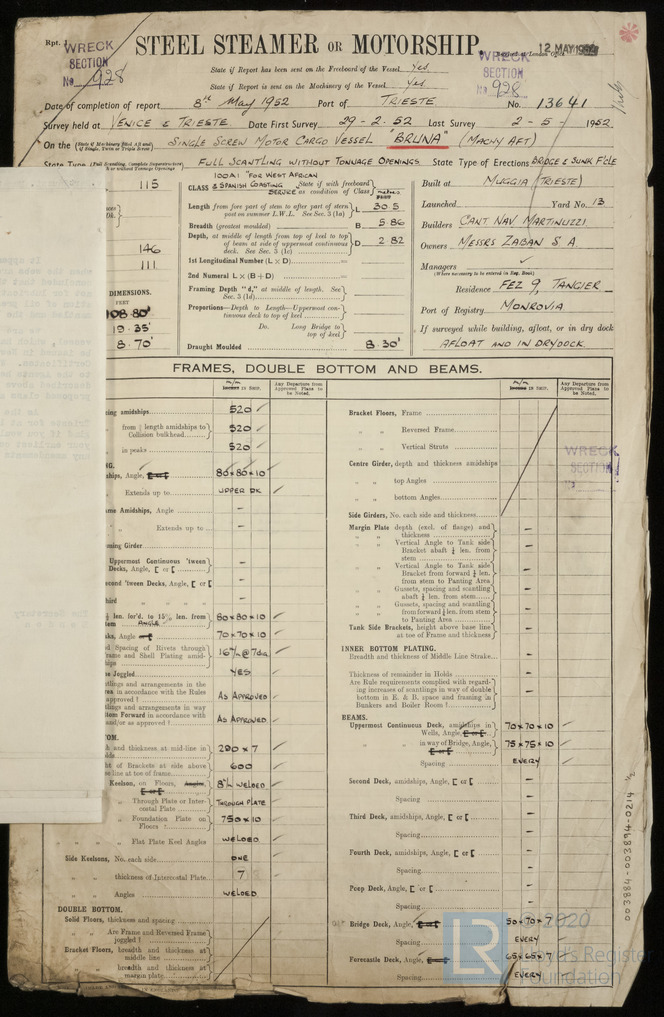 Rpt. 1
WRECK SECTION No 928
STEEL STEAMER OR MOTORSHIP.
WRECK SECTION No 928
12 MAY 1952
State if Report has been sent on the Freeboard of the Vessel Yes
State if Report is sent on the Machinery of the Vessel Yes
Date of completion of report 8th May 1952 Port of TRIESTE No. 13641
Survey held at VENICE & TRIESTE Date First Survey 29-2.52 Last Survey 2-5- 1952
On the SINGLE SCREW MOTOR CARGO VESSEL "BRUNA" (MACHY AFT)
State Type FULL SCANTLING WITHOUT TONNAGE OPENINGS State Type of Erections BRIDGE & SUNK F'CLE
115
146
111
DIMENSIONS.
FEET
108.80'
19.35'
8.70'
100A1 "FOR WEST AFRICAN
CLASS & SPANISH COASTING SERVICE State if with freeboard as condition of Class
Length from fore part of stem to after part of stern post on summer L.W.L. See Sec. 3 (1a) L 30.5
Breadth (greatest moulded) B 5.86
Depth, at middle of length from top of keel to top of beam at side of uppermost continuous deck. See Sec. 3 (1c) D 2.82
1st Longitudinal Number (L × D)
2nd Numeral L × (B + D)
Framing Depth "d," at middle of length. See Sec. 3 (1d)
Proportions—Depth to Length—Uppermost continuous deck to top of keel
Do. Long Bridge to top of keel
Draught Moulded 8.30'
Built at MUGGIA (TRIESTE)
Launched Yard No. 13
Builders CANT NAV MARTINUZZI
Owners MESSRS ZABAN S A
Managers
(Where necessary to be entered in Reg. Book)
Residence FEZ 9, TANGIER
Port of Registry MONROVIA
If surveyed while building, afloat, or in dry dock
AFLOAT AND IN DRYDOCK.
FRAMES, DOUBLE BOTTOM AND BEAMS.
m/m
Any Departure from Approved Plans to be Noted.
m/m
Any Departure from Approved Plans to be Noted.
amidships 520
from ⅗ length amidships to Collision bulkhead 520
in peaks 520
Angle, 80×80×10
Extends up to UPPER DK
Amidships, Angle -
Extends up to -
Girder
Uppermost Continuous 'tween Decks, Angle, [ or [ -
'tween Decks, Angle, [ or [ -
-
len. for'd. to 15% len. from ANGLE 80×80×10
Angle 70×70×10
Spacing of Rivets through Frame and Shell Plating 16 m/m @ 7 dia
Joggled YES
AS APPROVED
AS APPROVED
and thickness at mid-line in 280 × 7
of Brackets at side above line at toe of frame 600
Keelson, on Floors, 8 m/m WELDED
Through Plate or Intercostal Plate THROUGH PLATE
Foundation Plate on Floors 750×10
Flat Plate Keel Angles WELDED
Side Keelsons, No. each side ONE
thickness of Intercostal Plate 7
Angles WELDED
DOUBLE BOTTOM.
Solid Floors, thickness and spacing
Are Frame and Reversed Frame joggled?
Bracket Floors, breadth and thickness at middle line
breadth and thickness at margin plate
Bracket Floors, Frame
Reversed Frame
Vertical Struts
Centre Girder, depth and thickness amidships
top Angles
bottom Angles
Side Girders, No. each side and thickness
Margin Plate depth (excl. of flange) and thickness -
Vertical Angle to Tank side Bracket abaft ¼ len. from stem -
Vertical Angle to Tank side Bracket from forward ¼ len. from stem to Panting Area -
Gussets, spacing and scantling abaft ¼ len. from stem -
Gussets, spacing and scantling from forward ¼ len. from stem to Panting Area -
Tank Side Brackets, height above base line at toe of Frame and thickness -
INNER BOTTOM PLATING.
Breadth and thickness of Middle Line Strake -
Thickness of remainder in Holds -
Are Rule requirements complied with regarding increases of scantlings in way of double bottom in E. & B. space and framing in Bunkers and Boiler Room? -
BEAMS.
Uppermost Continuous Deck, amidships in Wells, Angle, 70×70×10
in way of Bridge, Angle, 75×75×10
Spacing EVERY
Second Deck, amidships, Angle, [ or [ -
Spacing -
Third Deck, amidships, Angle, [ or [ -
Spacing -
Fourth Deck, amidships, Angle, [ or [ -
Spacing -
Poop Deck, Angle, [ or [ -
Spacing -
Bridge Deck, Angle, 50×70×7
Spacing EVERY
Forecastle Deck, Angle, 65×65×7
Spacing EVERY
WRECK SECTION No
003884-003894-0214 ½
LR
© 2020
Lloyd's Register Foundation